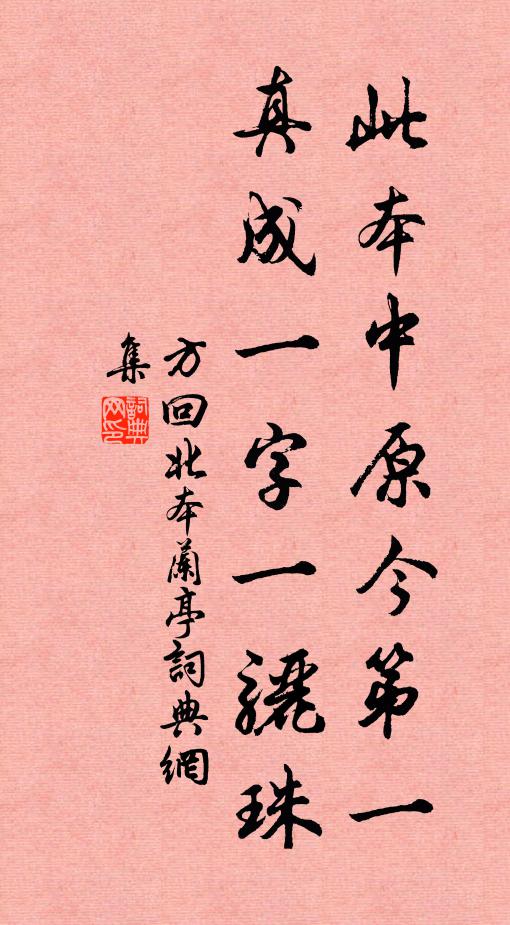 此本中原今第一
真成一字一驪珠
方回北本蘭亭詞典網
集
詞典網印